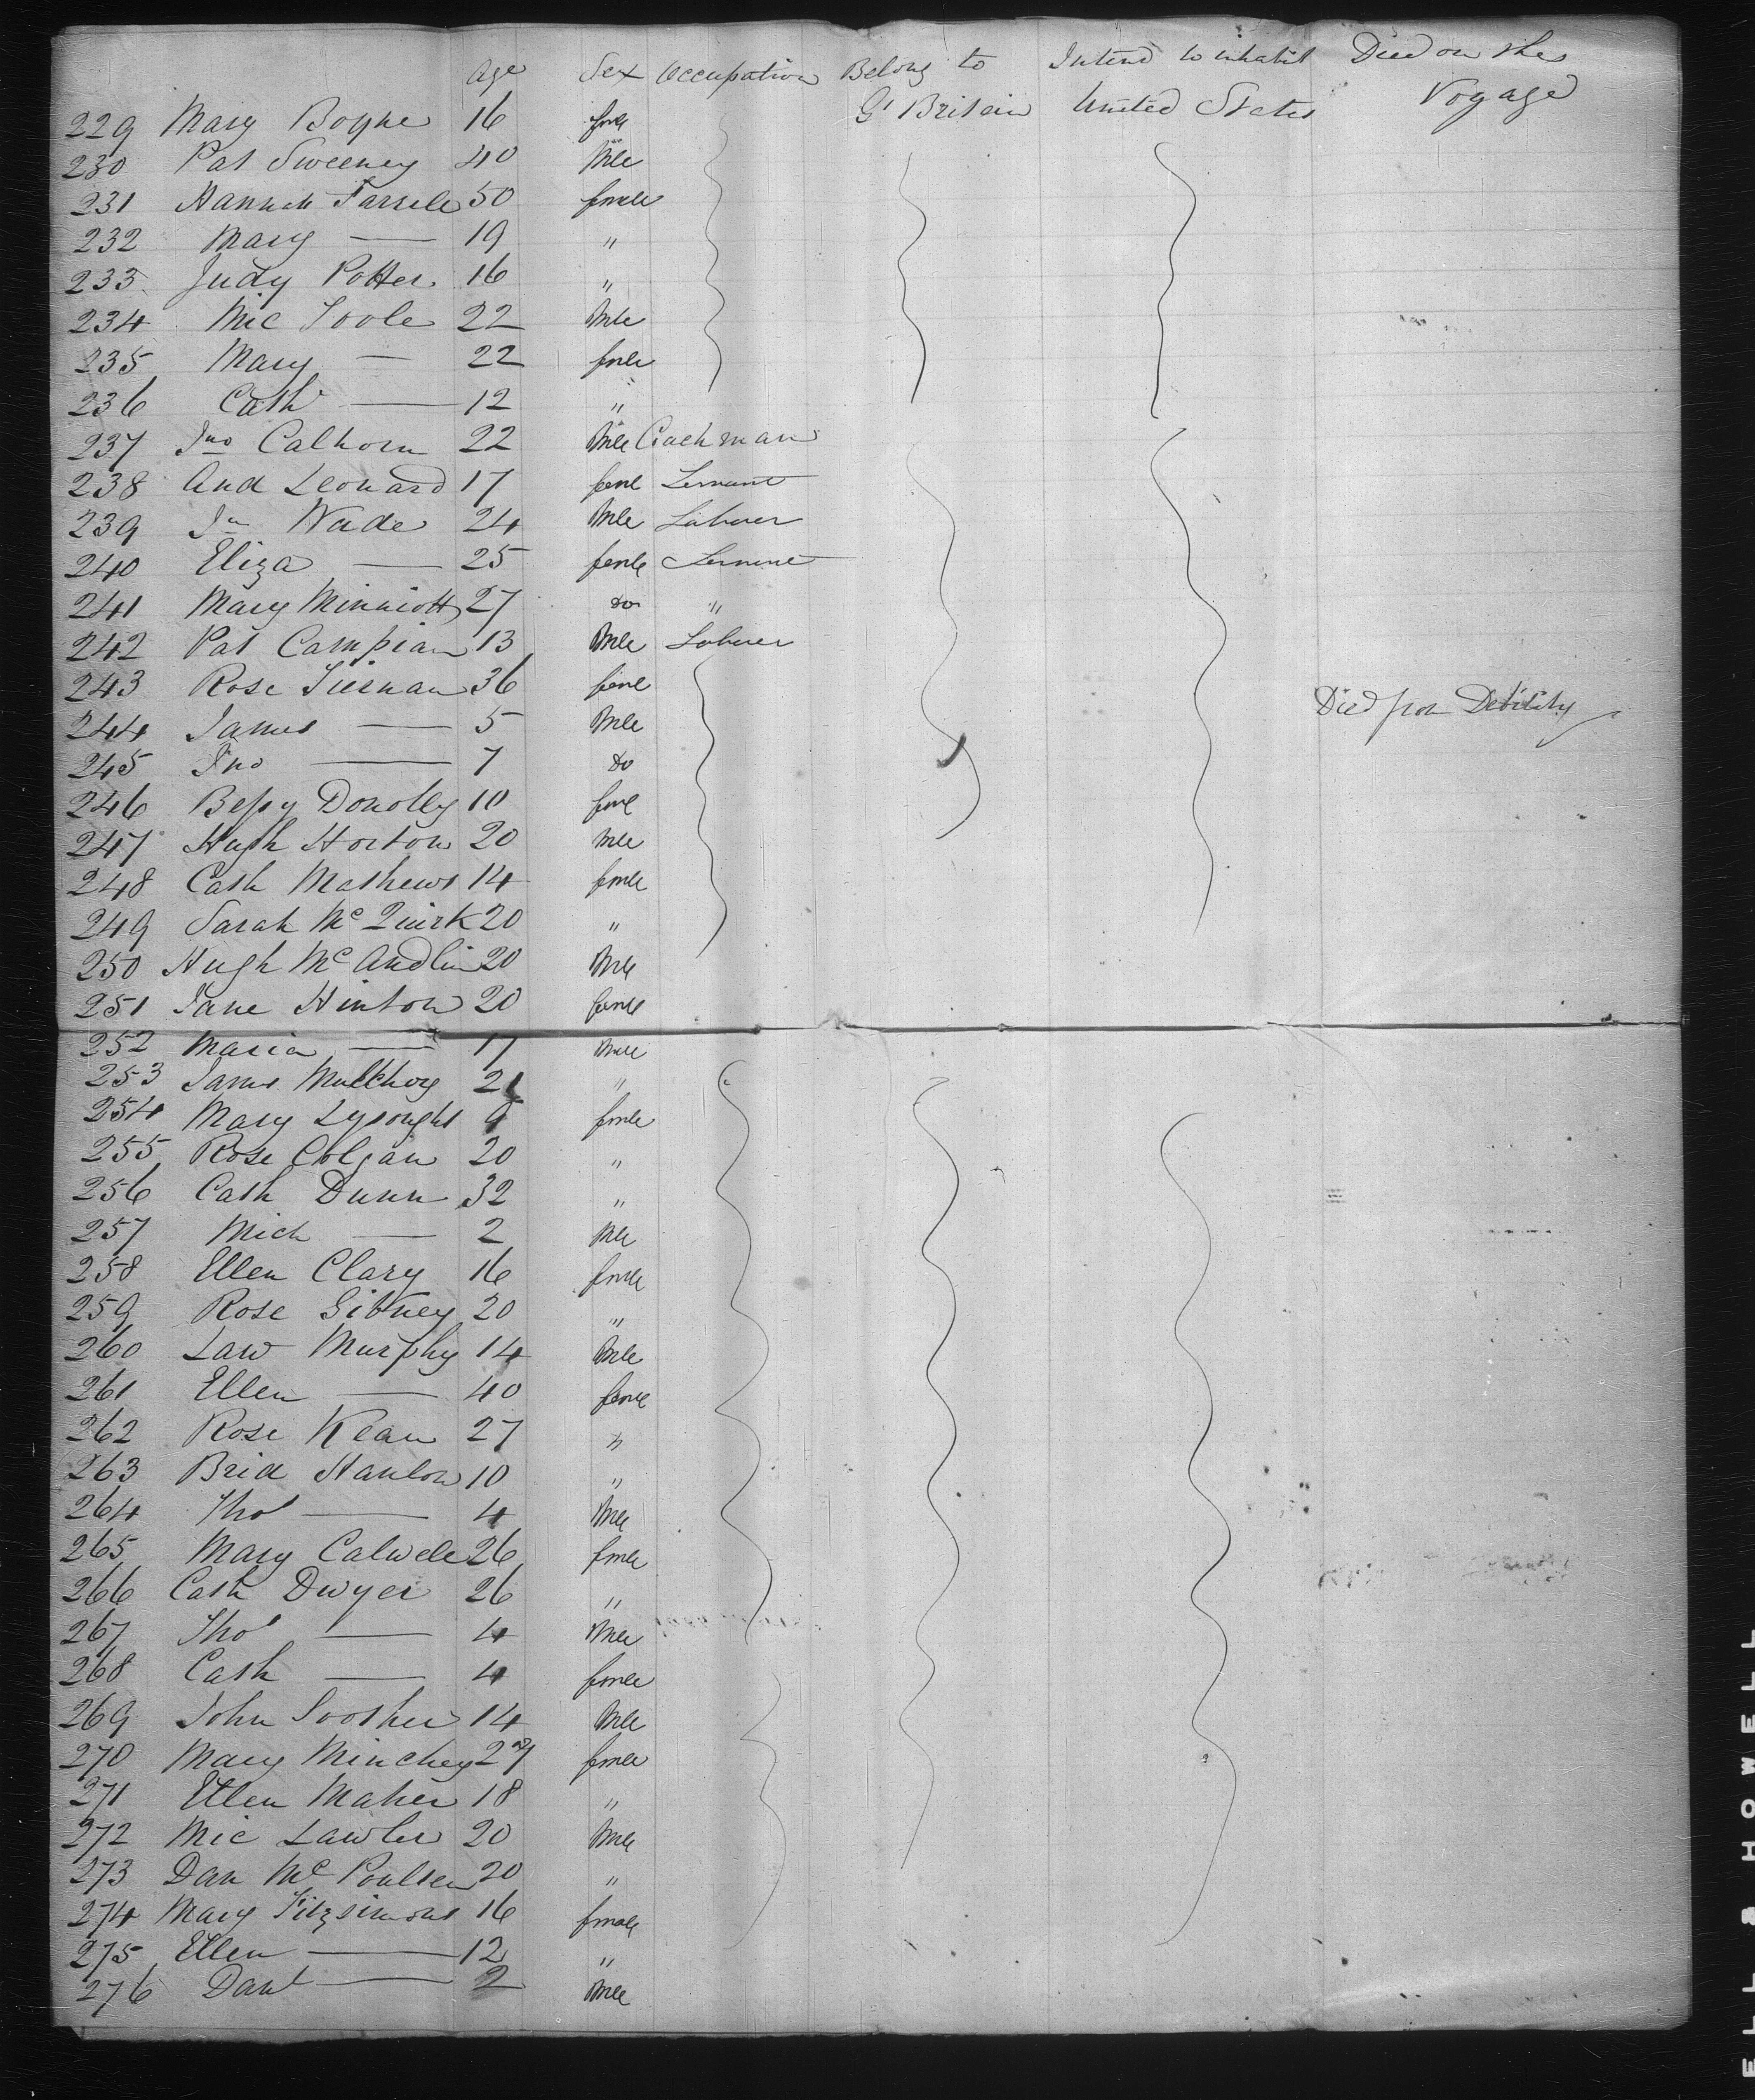 Age Sex Occupation Belong to Intend to inhabit Died on the
Gt Britain United States Voyage
229 Mary Boyne 16 fmle
230 Pat Sweeney 40 Mle
231 Hannah Farrele 50 fmele
232 Mary — 19 "
233 Judy Potter 16 "
234 Mic Toole 22 Mle
235 Mary — 22 fmle
236 Cath — 12 "
237 Jno Calhorn 22 Mle Coachman
238 And Leonard 17 feml Servant
239 Jn Wade 24 Mle Laborer
240 Eliza — 25 femle Servant
241 Mary 27 do "
242 Pat Campian 13 Mle Laborer
243 Rose Tiernan 36 feml
244 James — 5 Mle Died from Debility
245 Jno — 7 do
246 Bessy Donolly 10 fml
247 Hugh Horton 20 Mle
248 Cath Mathews 14 fmle
249 Sarah Mc Quirk 20 "
250 Hugh Mc Andlin 20 Mle
251 Jane Hinton 20 femle
252 Maria — 17 Mle
253 James 21 "
254 Mary Lysought 9 fmle
255 Rose Colgan 20 "
256 Cath Dunn 32 "
257 Mich — 2 Mle
258 Ellen Clary 16 fmle
259 Rose Gibney 20 "
260 Law Murphy 14 Mle
261 Ellen — 40 femle
262 Rose Kean 27 "
263 Brid Hanlon 10 "
264 Thos — 4 Mle
265 Mary Calwele 26 fmle
266 Cath Dwyer 26 "
267 Thos — 4 Mle
268 Cath — 4 femle
269 John 14 Mle
270 Mary Minchey 27 fmle
271 Ellen Maher 18 "
272 Mic Lawler 20 Mle
273 Dan Mc Poulsen 20 "
274 Mary Fitzsimons 16 fmale
275 Ellen — 12 "
276 Danl — 2 Mle
ELL & HOWELL